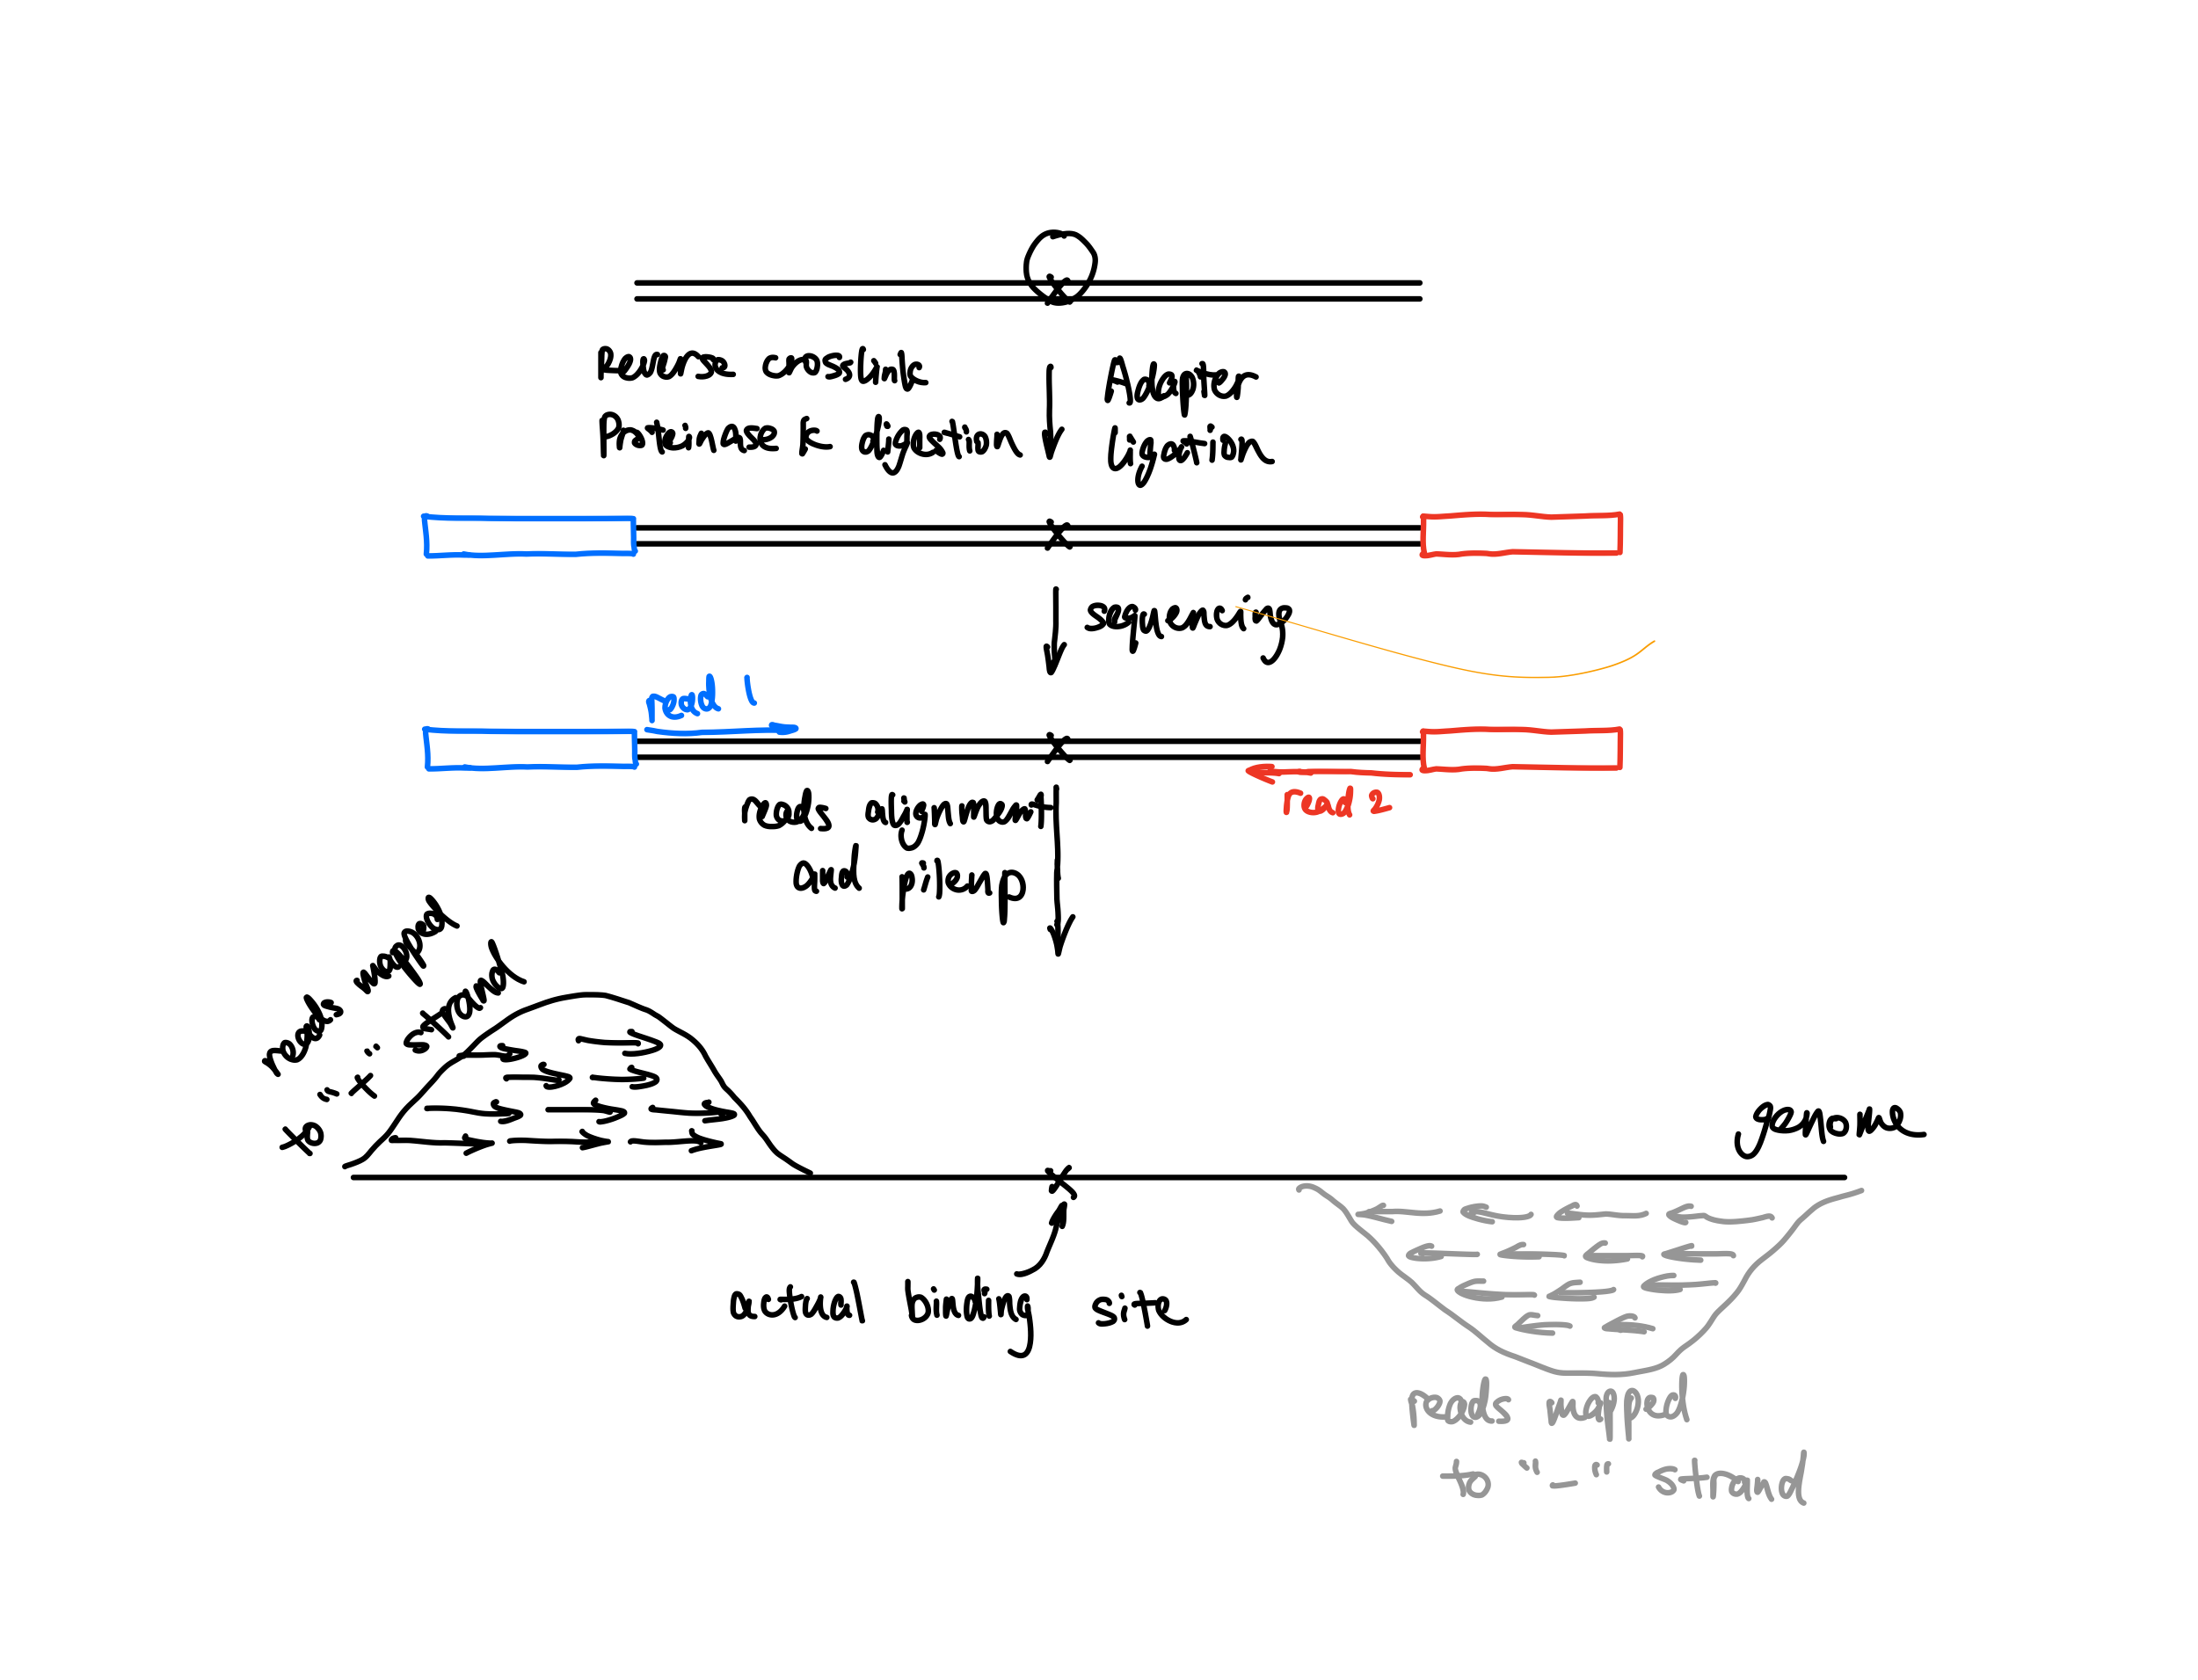 Reverse crosslink
Proteinase K digestion
Adapter
ligation
sequencing
read 1
read 2
reads alignment
and pileup
reads mapped
to "+" strand
genome
actual binding site
reads mapped
to "-" strand